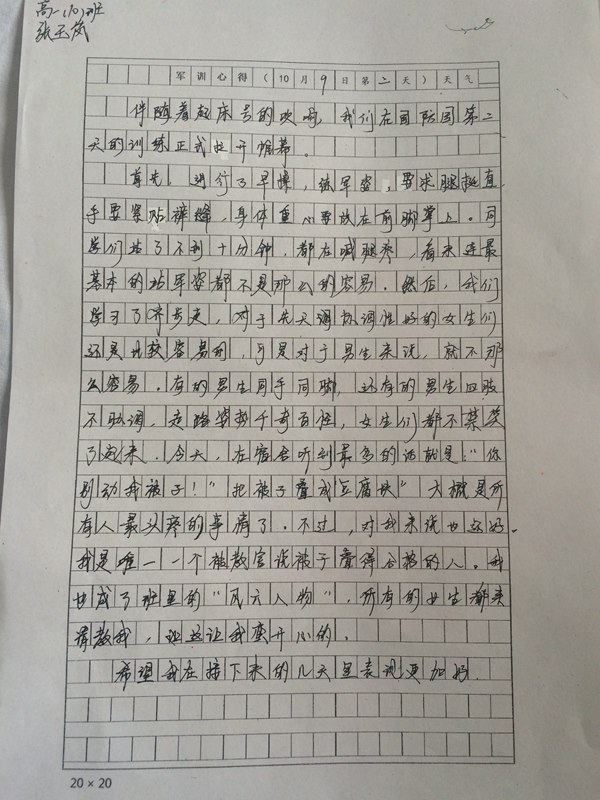 高一(10)班
张玉岚
军训心得(10月9日第二天)天气
伴随着起床号的吹响,我们在国防园第二
天的训练正式拉开帷幕。
首先,进行了早操,练军姿,要求腿挺直,
手要紧贴裤缝,身体重心要放在前脚掌上。同
学们站了不到十分钟,都在喊腿疼,看来连最
基本的站军姿都不是那么的容易。然后,我们
学习了齐步走,对于先天调协调性好的女生们
还是比较容易的,可是对于男生来说,就不那
么容易。有的男生同手同脚,还有的男生四肢
不协调,走路姿势千奇百怪,女生们都不禁笑
了起来。今天,在宿舍听到最多的话就是:“你
别动我被子!”把被子叠成“豆腐块”大概是所
有人最头疼的事情了。不过,对我来说也还好。
我是唯一一个被教官说被子叠得合格的人。我
也成了班里的“风云人物”,所有的女生都来
请教我,这让我蛮开心的。
希望我在接下来的几天里表现更加好。
20×20